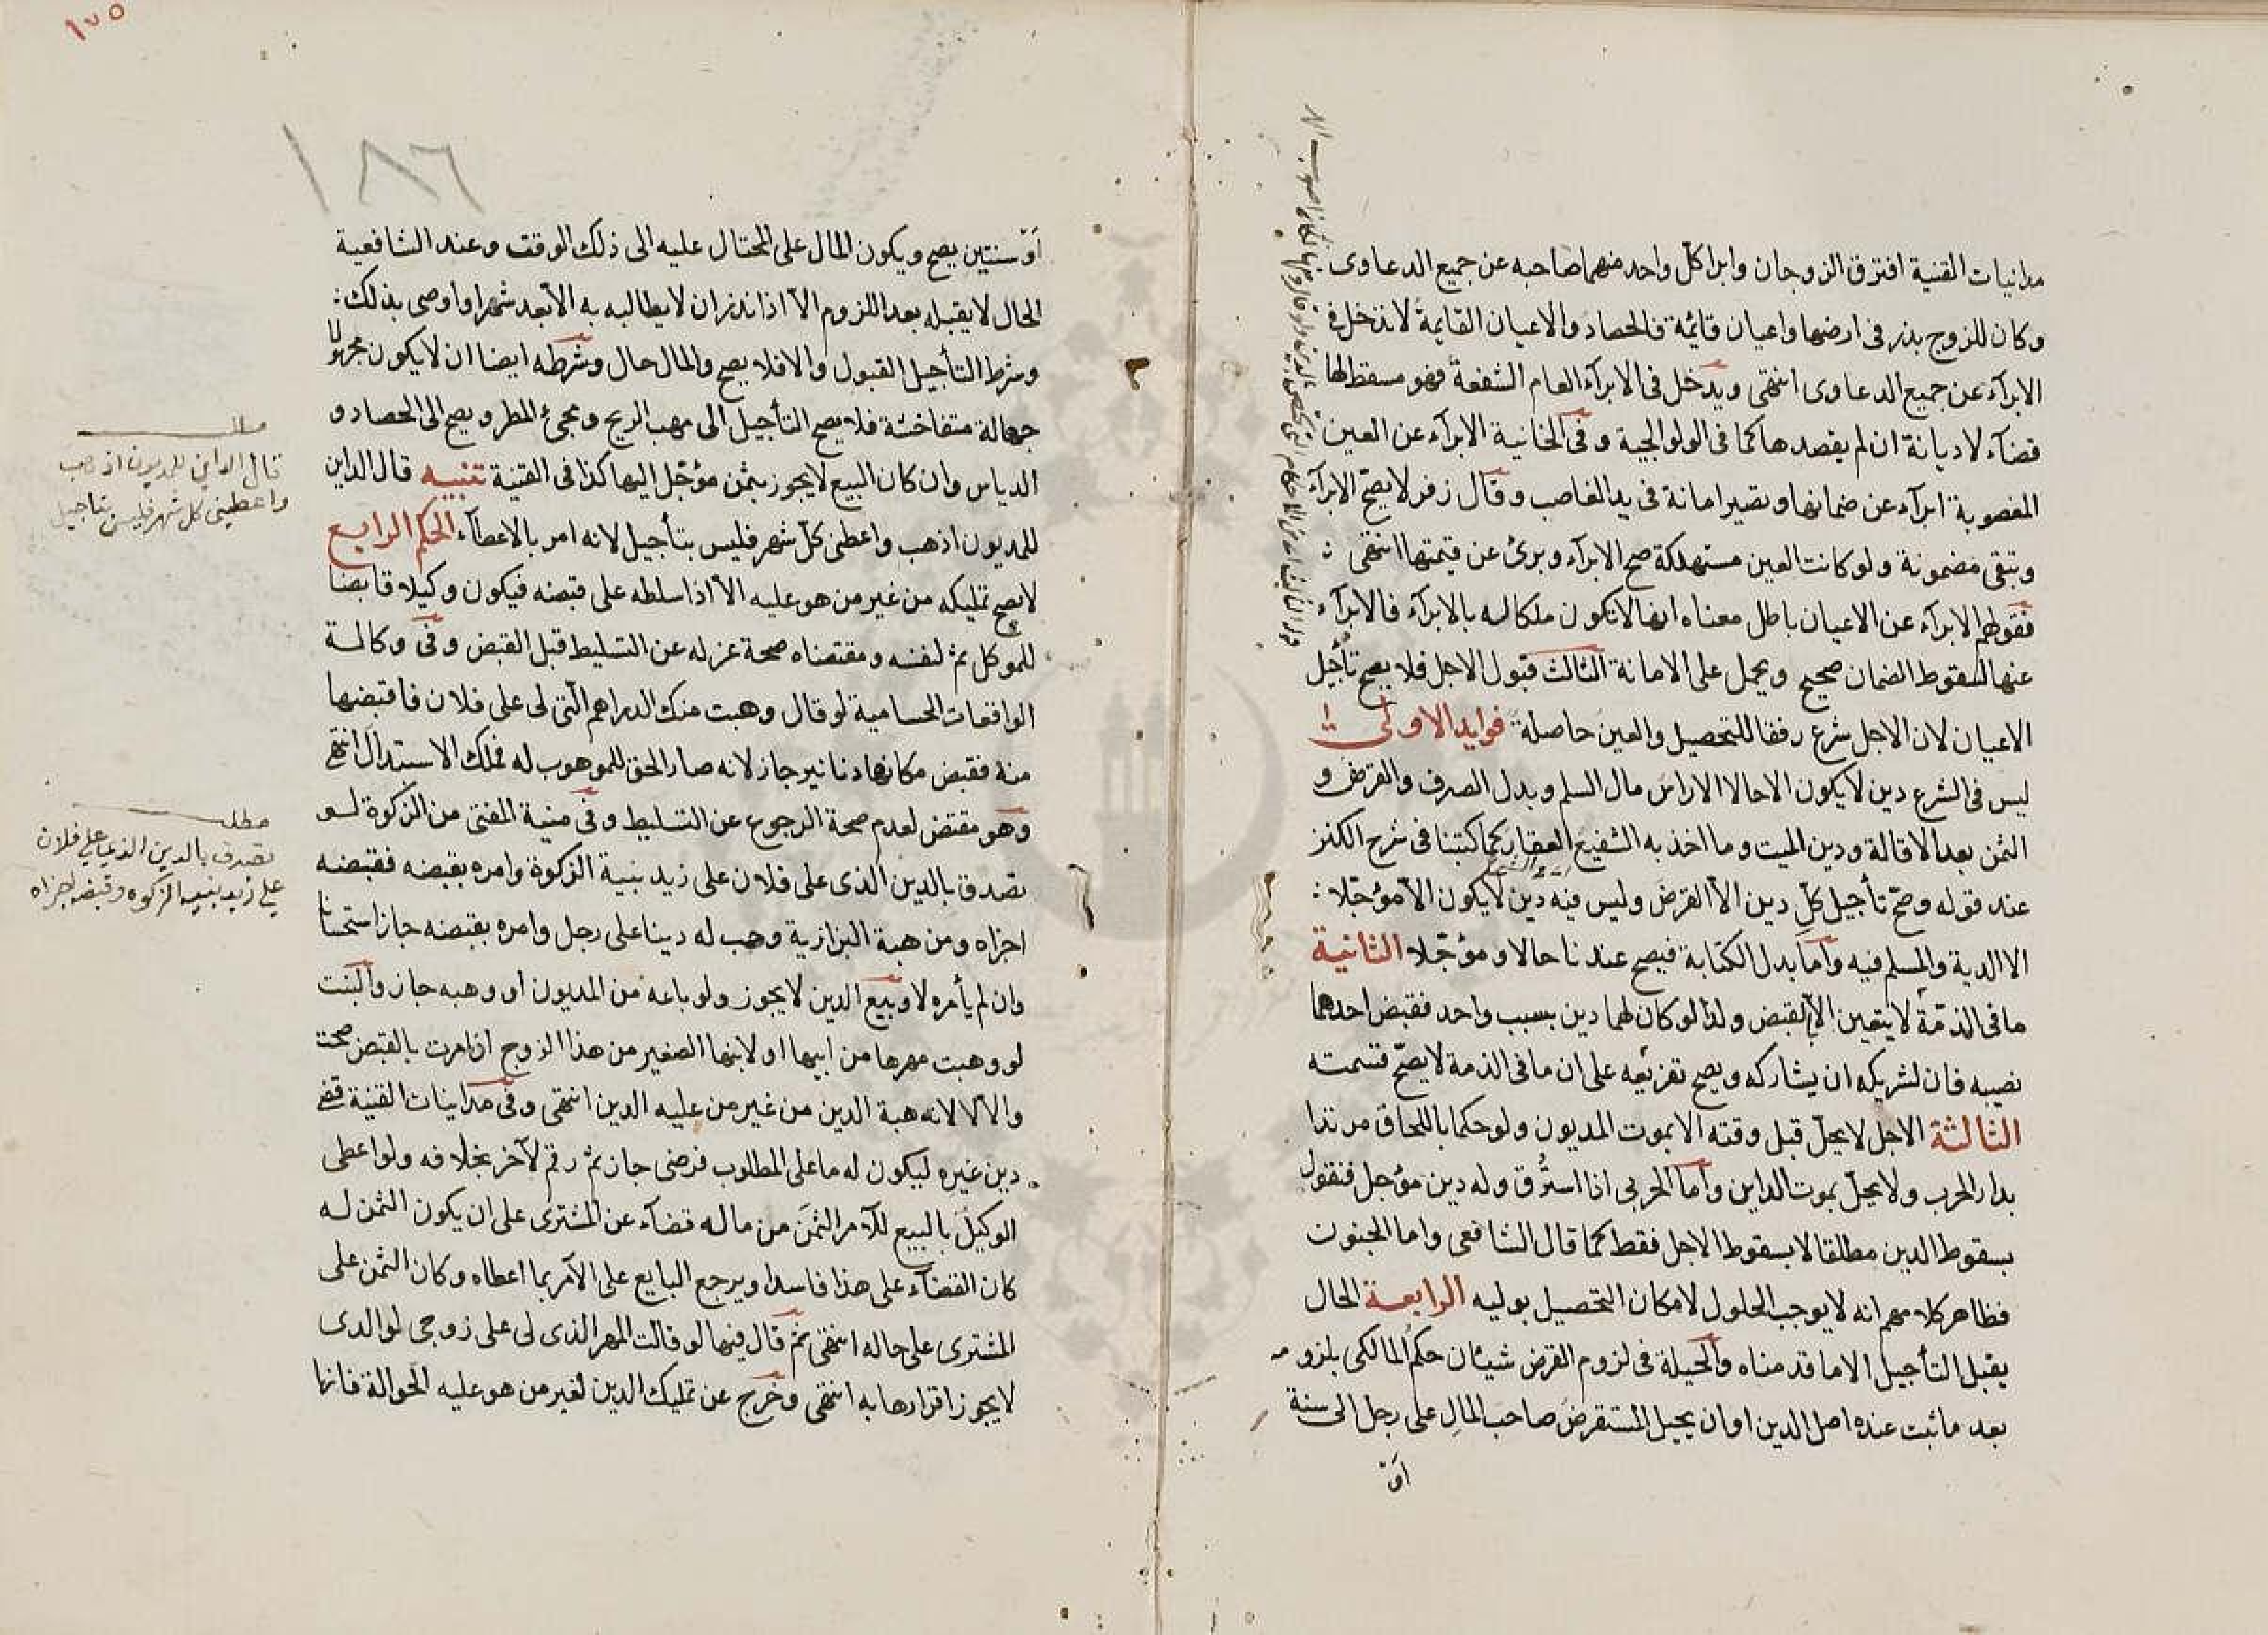 مداينات القنية افترق الزوجان وابرا كل واحد منهما صاحبه عن جميع الدعاوى
وكان للزوج بذر فى ارضها واعيان قائمة فالحصاد والاعيان القايمة لا تدخل فى
الابرآء عن جميع الدعاوى انتهى ويدخل فى الابرآء العام الشفعة فهو مسقط لها
قضآء لا ديانة ان لم يقصدها كما فى الولوالجية وفى الخانية الابرآء عن العين
المغصوبة ابرآء عن ضمانها وتصير امانة فى يد الغاصب وقال زفر لا يصح الابرآء
وتبقى مضمونة ولو كانت العين مستهلكة صح الابرآء وبرئ عن قيمتها انتهى
فقولهم الابرآء عن الاعيان باطل معناه انها لا تكون ملكا له بالابرآء فالابرآء
عنها لسقوط الضمان صحيح ويحمل على الامانة الثالث قبول الاجل فلا يصح تأجيل
الاعيان لان الاجل شرع رفقا للتحصيل والعين حاصلة فوايد الاولى
ليس فى الشرع دين لا يكون الا حالا الا راس مال السلم وبدل الصرف والقرض و
الثمن بعد الاقالة ودين الميت وما اخذ به الشفيع العقار كما كتبنا فى شرح الكنز
عند قوله وصح تأجيل كل دين الا القرض وليس فيه دين لا يكون الا مؤجلا
الا الدية والمسلم فيه واما بدل الكتابة فيصح عندنا حالا ومؤجلا الثانية
ما فى الذمة لا يتعين الا بالقبض ولذا لو كان لهما دين بسبب واحد فقبض احدهما
نصيبه فان لشريكه ان يشاركه ويصح تفريعه على ان ما فى الذمة لا يصح قسمته
الثالثة الاجل لا يحل قبل وقته الا بموت المديون ولو حكما باللحاق مرتدا
بدار الحرب ولا يحل بموت الداين واما الحربى اذا استرق وله دين مؤجل فنقول
بسقوط الدين مطلقا لا بسقوط الاجل فقط كما قال الشافعى واما الجنون
فظاهر كلامهم انه لا يوجب الحلول لامكان التحصيل بوليه الرابعة الحال
يقبل التأجيل الا ما قدمناه والحيلة فى لزوم القرض شيئان حكم المالكى بلزومه
بعد ما ثبت عنده اصل الدين او ان يحيل المستقرض صاحب المال على رجل الى سنة
او
١٧٥
١٨٦
او سنتين يصح ويكون المال على المحتال عليه الى ذلك الوقت وعند الشافعية
الحال لا يقبله بعد اللزوم الا اذا نذر ان لا يطالبه به الا بعد شهر او اوصى بذلك
وشرط التأجيل القبول والا فلا يصح والمال حال وشرطه ايضا ان لا يكون مجهولا
جهالة متفاحشة فلا يصح التأجيل الى مهب الريح ومجئ المطر ويصح الى الحصاد و
الدياس وان كان البيع لا يجوز بثمن مؤجل اليها كذا فى القنية تنبيه قال الداين
للمديون اذهب واعطنى كل شهر فليس بتأجيل لانه امر بالاعطآء الحكم الرابع
لا يصح تمليكه من غير من هو عليه الا اذا سلطه على قبضه فيكون وكيلا قابضا
للموكل ثم لنفسه ومقتضاه صحة عزله عن التسليط قبل القبض وفى وكالة
الواقعات الحسامية لو قال وهبت منك الدراهم التى لى على فلان فاقبضها
منه فقبض مكانها دنانير جاز لانه صار الحق للموهوب له فملك الاستبدال انتهى
وهو مقتض لعدم صحة الرجوع عن التسليط وفى منية المفتى من الزكوة لو
تصدق بالدين الذى على فلان على زيد بنية الزكوة وامره بقبضه فقبضه
اجزاه ومن هبة البزازية وهب له دينا على رجل وامره بقبضه جاز استحسانا
وان لم يأمره لا وبيع الدين لا يجوز ولو باعه من المديون او وهبه جاز والبنت
لو وهبت مهرها من ابيها او لابنها الصغير من هذا الزوج ان امرت بالقبض صحت
والا لا لانه هبة الدين من غير من عليه الدين انتهى وفى مداينات القنية قضى
دين غيره ليكون له ما على المطلوب فرضى جاز ثم رقم لآخر بخلافه ولو اعطى
الوكيل بالبيع للآمر الثمن من ماله قضآء عن المشترى على ان يكون الثمن له
كان القضآء على هذا فاسدا ويرجع البايع على الآمر بما اعطاه وكان الثمن على
المشترى على حاله انتهى ثم قال فيها لو قالت المهر الذى لى على زوجى لوالدى
لا يجوز اقرارها به انتهى وخرج عن تمليك الدين لغير من هو عليه الحوالة فانها
مطلب
قال الداين للمديون اذهب
واعطينى كل شهر فليس بتاجيل
مطلب
تصدق بالدين الذى على فلان
على زيد بنية الزكوة وقبضه اجزاه